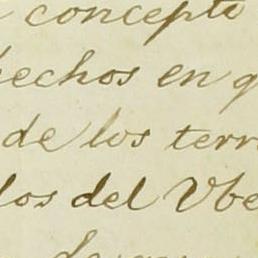 concepto
hechos en q
de los terr
los del Ube